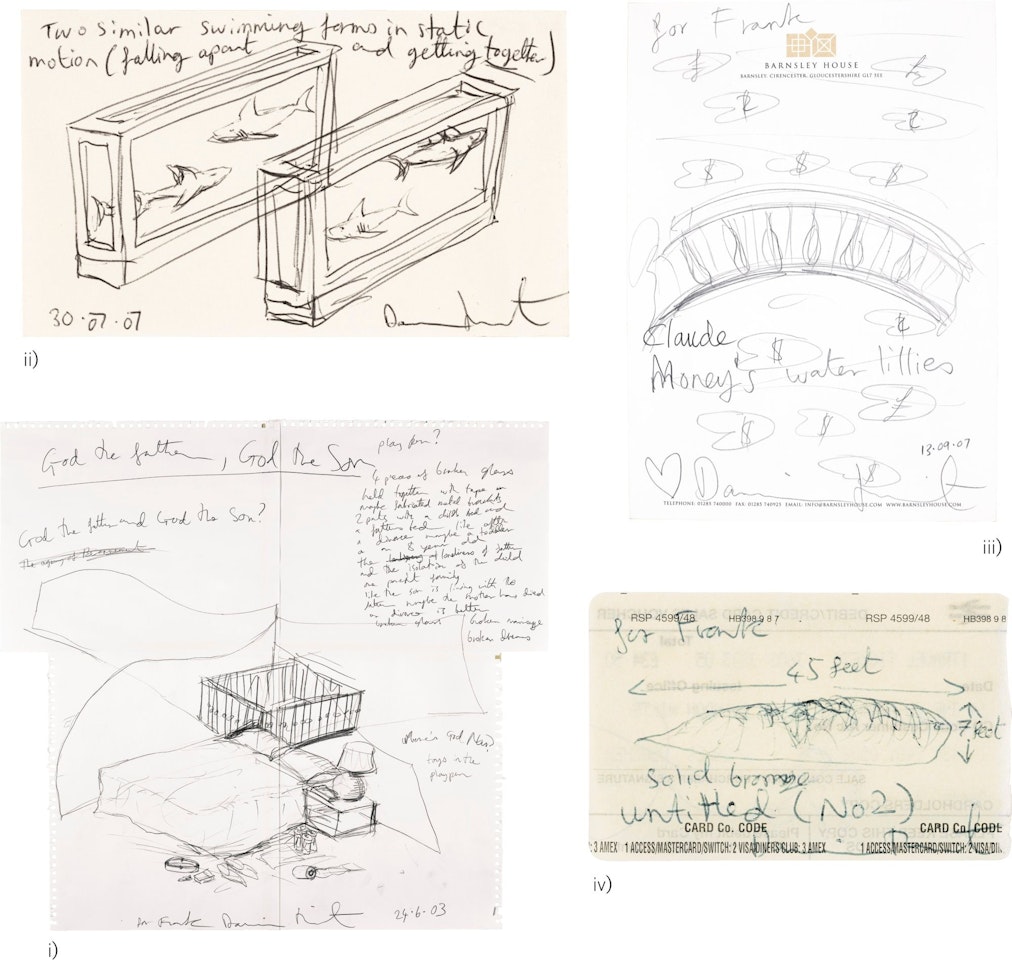 Two similar swimming forms in static
motion (falling apart and getting together)
30.07.07
Damien Hirst
ii)
for Frank
BARNSLEY HOUSE
BARNSLEY, CIRENCESTER, GLOUCESTERSHIRE GL7 5EE
£
£
$
$
$
Claude
Money's water lillies
$
£
$
$
$
13.09.07
Damien Hirst
TELEPHONE: 01285 740000 FAX: 01285 740925 EMAIL: INFO@BARNSLEYHOUSE.COM WWW.BARNSLEYHOUSE.COM
iii)
God the father, God the Son,
God the father and God the Son?
play pen?
4 pieces of broken glass
held together with tape or
maybe fabricated metal brackets
2 parts with a childs bed and
a fathers bed like after
a divorce maybe a toddler
or a 8 year old
the loneliness of father
and the isolation of the child
one parent family
like the son is living with the
father maybe the mother has died
or divorce is better
broken glass
broken marriage
broken dreams
Where's God Now?
toys in the
playpen
for Frank Damien Hirst 24.6.03
i)
RSP 4599/48 HB398 9 8 7 RSP 4599/48 HB398 9 8
for Frank
45 feet
7 feet
solid bronze
untitled (No2)
CARD Co. CODE CARD Co. CODE
: 3 AMEX 1 ACCESS/MASTERCARD/SWITCH: 2 VISA/DINERS CLUB: 3 AMEX 1 ACCESS/MASTERCARD/SWITCH: 2 VISA/DIN
iv)